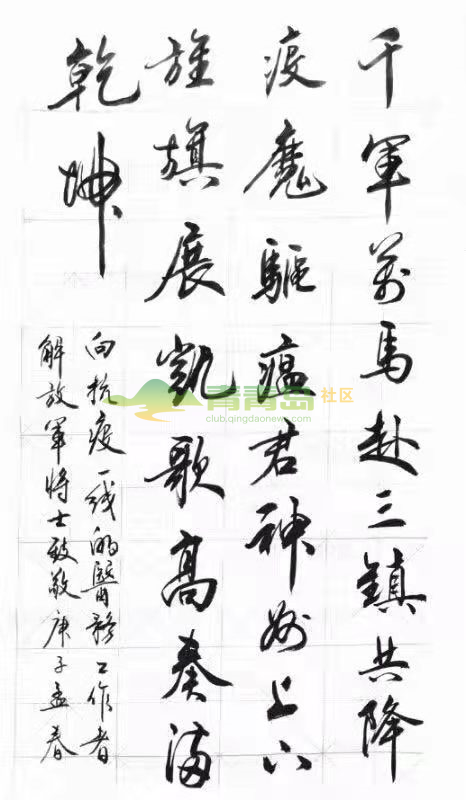 千軍萬馬赴三鎮共降
疫魔驅瘟君神州上下
旌旗展凱歌高奏滿
乾坤
向抗疫一线的醫務工作者
解放軍將士致敬庚子孟春
青青岛社区
club.qingdaonews.com